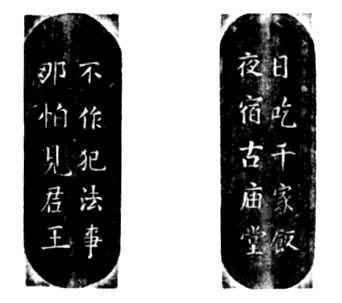 日吃千家飯
夜宿古庙堂
不作犯法事
那怕見君王